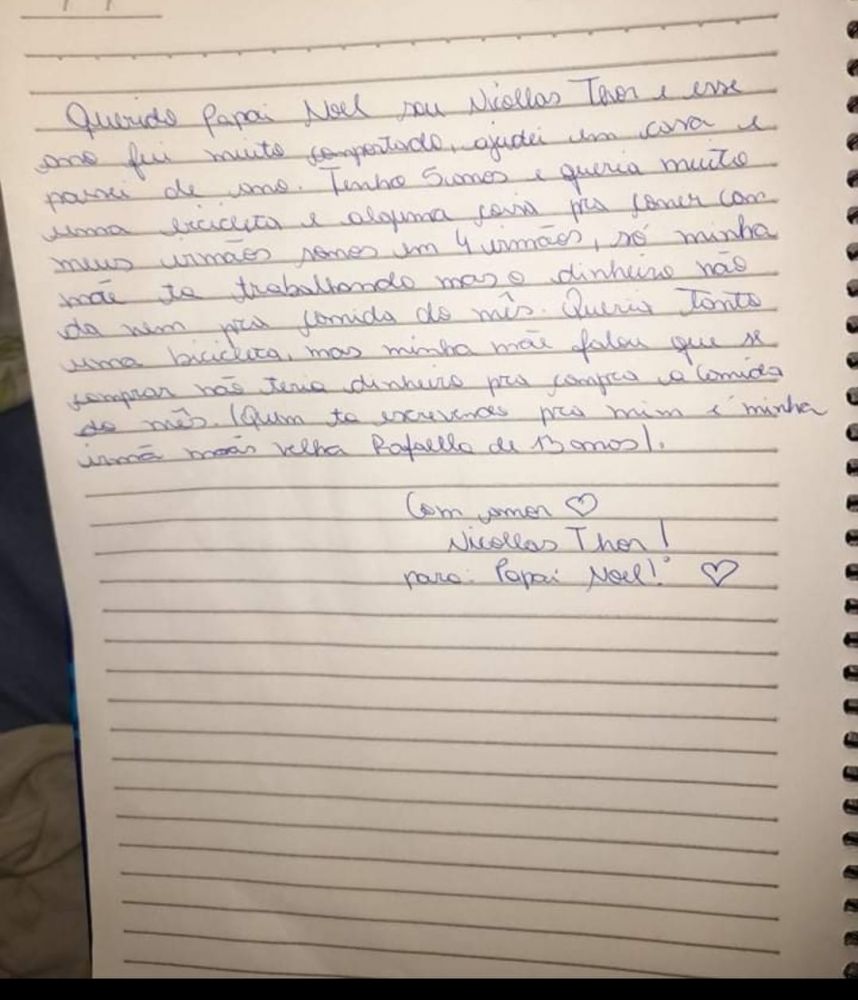 Querido Papai Noel sou Nicollas Thor e esse
ano fui muito comportado, ajudei em casa e
passei de ano. Tenho 5 anos e queria muito
uma bicicleta e alguma coisa pra comer com
meus irmãos somos em 4 irmãos, só minha
mãe ta trabalhando mas o dinheiro não
da nem pra comida do mês. Queria Tanto
uma bicicleta, mas minha mãe falou que se
comprar não teria dinheiro pra compra a comida
do mês. (Quem ta escrevendo pra mim é minha
irmã mais velha Rafaella de 13 anos).
Com amor ♡
Nicollas Thor!
para: Papai Noel! ♡